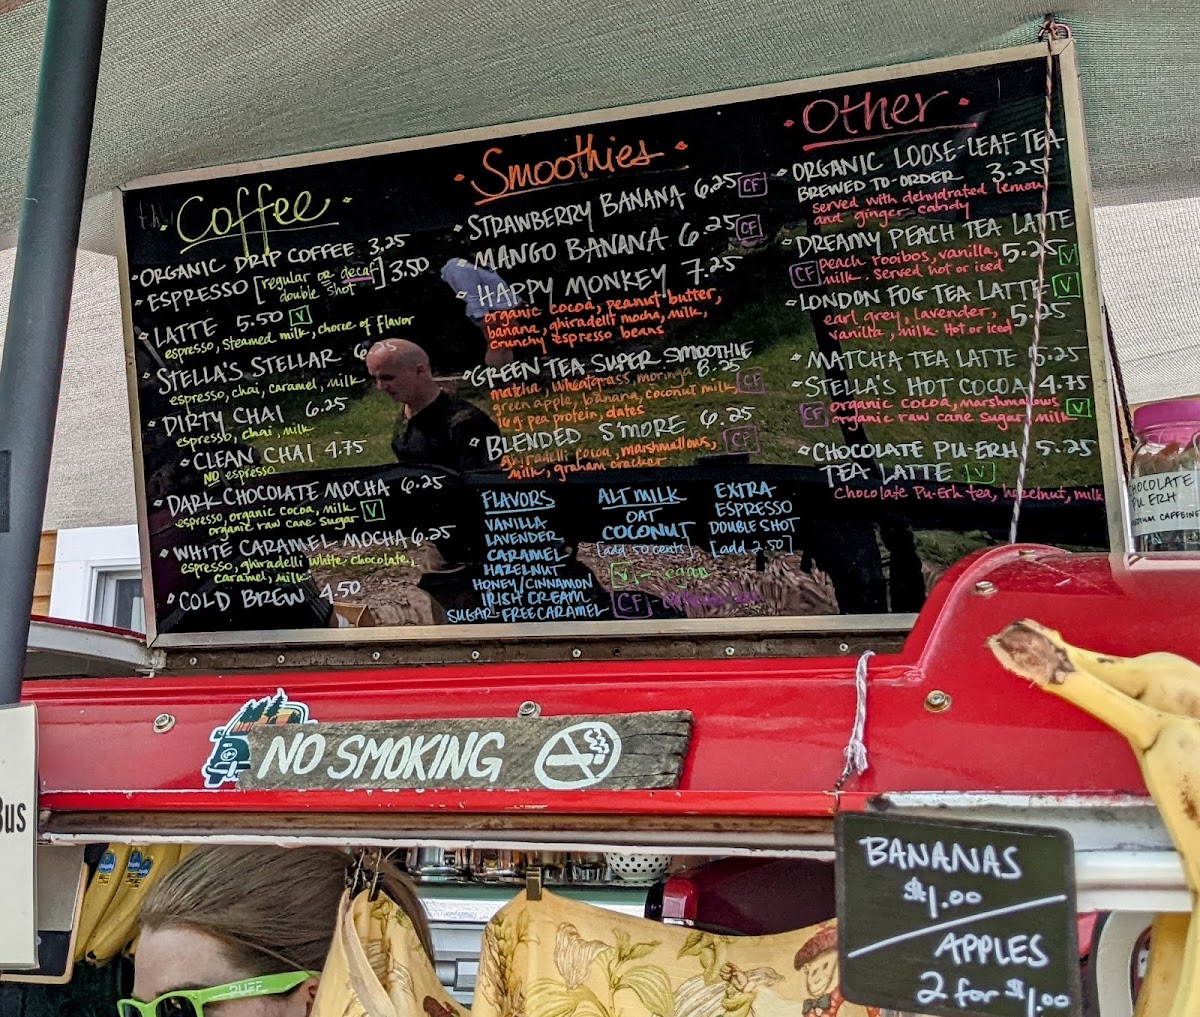 Coffee
ORGANIC DRIP COFFEE 3.25
ESPRESSO [regular or decaf] 3.50
double shot
LATTE 5.50 V
espresso, steamed milk, choice of flavor
STELLA'S STELLAR
espresso, chai, caramel, milk
DIRTY CHAI 6.25
espresso, chai, milk
CLEAN CHAI 4.75
NO espresso
DARK CHOCOLATE MOCHA 6.25
espresso, organic cocoa, milk V
organic raw cane sugar
WHITE CARAMEL MOCHA 6.25
espresso, ghiradelli white chocolate,
caramel, milk
COLD BREW 4.50
Smoothies
STRAWBERRY BANANA 6.25 CF
MANGO BANANA 6.25 CF
HAPPY MONKEY 7.25
organic cocoa, peanut butter,
banana, ghiradelli mocha, milk,
crunchy espresso beans
GREEN TEA SUPER SMOOTHIE
matcha, wheatgrass, moringa 8.25
green apple, banana, coconut milk CF
16g pea protein, dates
BLENDED S'MORE 6.25
cocoa, marshmallows, CF
milk, graham cracker
FLAVORS
VANILLA
LAVENDER
CARAMEL
HAZELNUT
HONEY/CINNAMON
IRISH CREAM
SUGAR-FREE CARAMEL
ALT MILK
OAT
COCONUT
[add 50 cents]
V -
CF -
EXTRA
ESPRESSO
DOUBLE SHOT
[add 2.50]
Other
ORGANIC LOOSE-LEAF TEA
BREWED TO-ORDER 3.25
served with dehydrated lemon
and ginger candy
DREAMY PEACH TEA LATTE
CF peach rooibos, vanilla, 5.25 V
milk. Served hot or iced
LONDON FOG TEA LATTE V
earl grey, lavender, 5.25
vanilla, milk. Hot or iced
MATCHA TEA LATTE 5.25
STELLA'S HOT COCOA 4.75
CF organic cocoa, marshmallows V
organic raw cane sugar, milk
CHOCOLATE PU-ERH 5.25
TEA LATTE V
Chocolate Pu-Erh tea, hazelnut, milk
CHOCOLATE
PU ERH
CAFFEINE
NO SMOKING
Bus
BANANAS
$1.00
APPLES
2 for $1.00